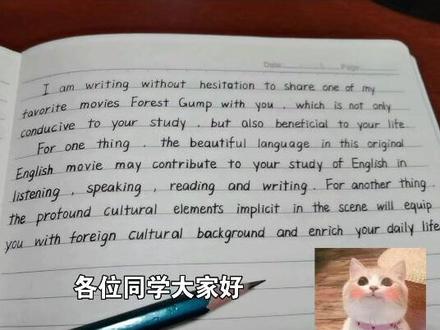 Date: Page:
I am writing without hesitation to share one of my
favorite movies Forest Gump with you , which is not only
conducive to your study , but also beneficial to your life
For one thing , the beautiful language in this original
English movie may contribute to your study of English in
listening , speaking , reading and writing . For another thing ,
the profound cultural elements implicit in the scene will equip
you with foreign cultural background and enrich your daily life
各位同学大家好